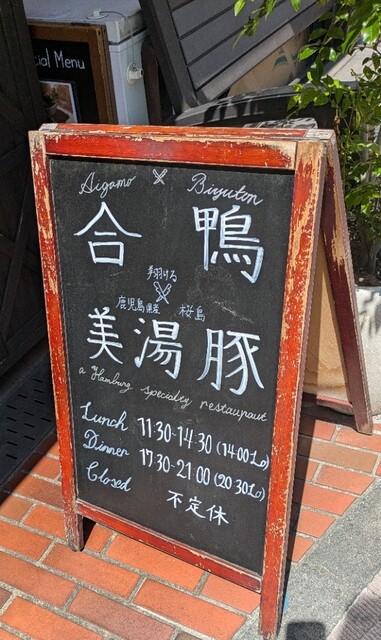 cial Menu
Aigamo × Biyuton
合鴨
翔ける
鹿児島県産 桜島
美湯豚
a Hamburg specialty restaurant
Lunch 11:30-14:30 (14:00 Lo)
Dinner 17:30-21:00 (20:30 Lo)
Closed 不定休